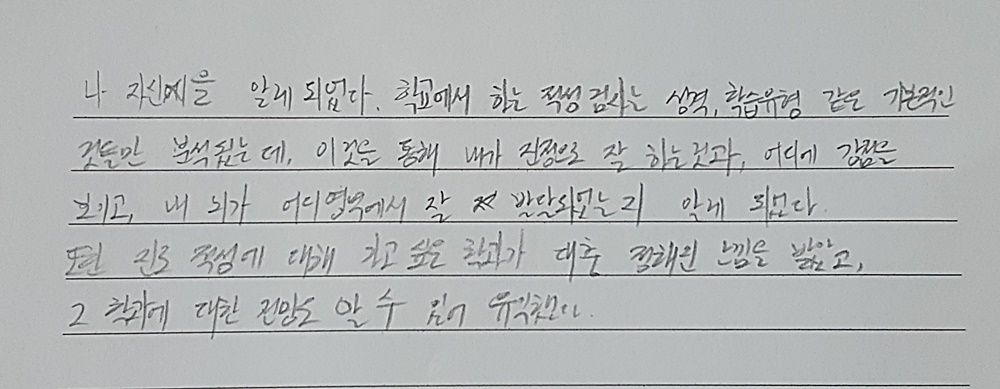 나 자신에을 알게 되었다. 학교에서 하는 적성 검사는 성격, 학습유형 같은 기본적인
것들만 분석됬는데, 이것을 통해 내가 진정으로 잘 하는것과, 어디에 강점을
보이고, 내 뇌가 어디영역에서 잘 발달되었는지 알게 되었다.
또한 진로 적성에 대해 가고 싶은 학과가 대충 정해진 느낌을 받았고,
그 학과에 대한 전망도 알 수 있어 유익했다.